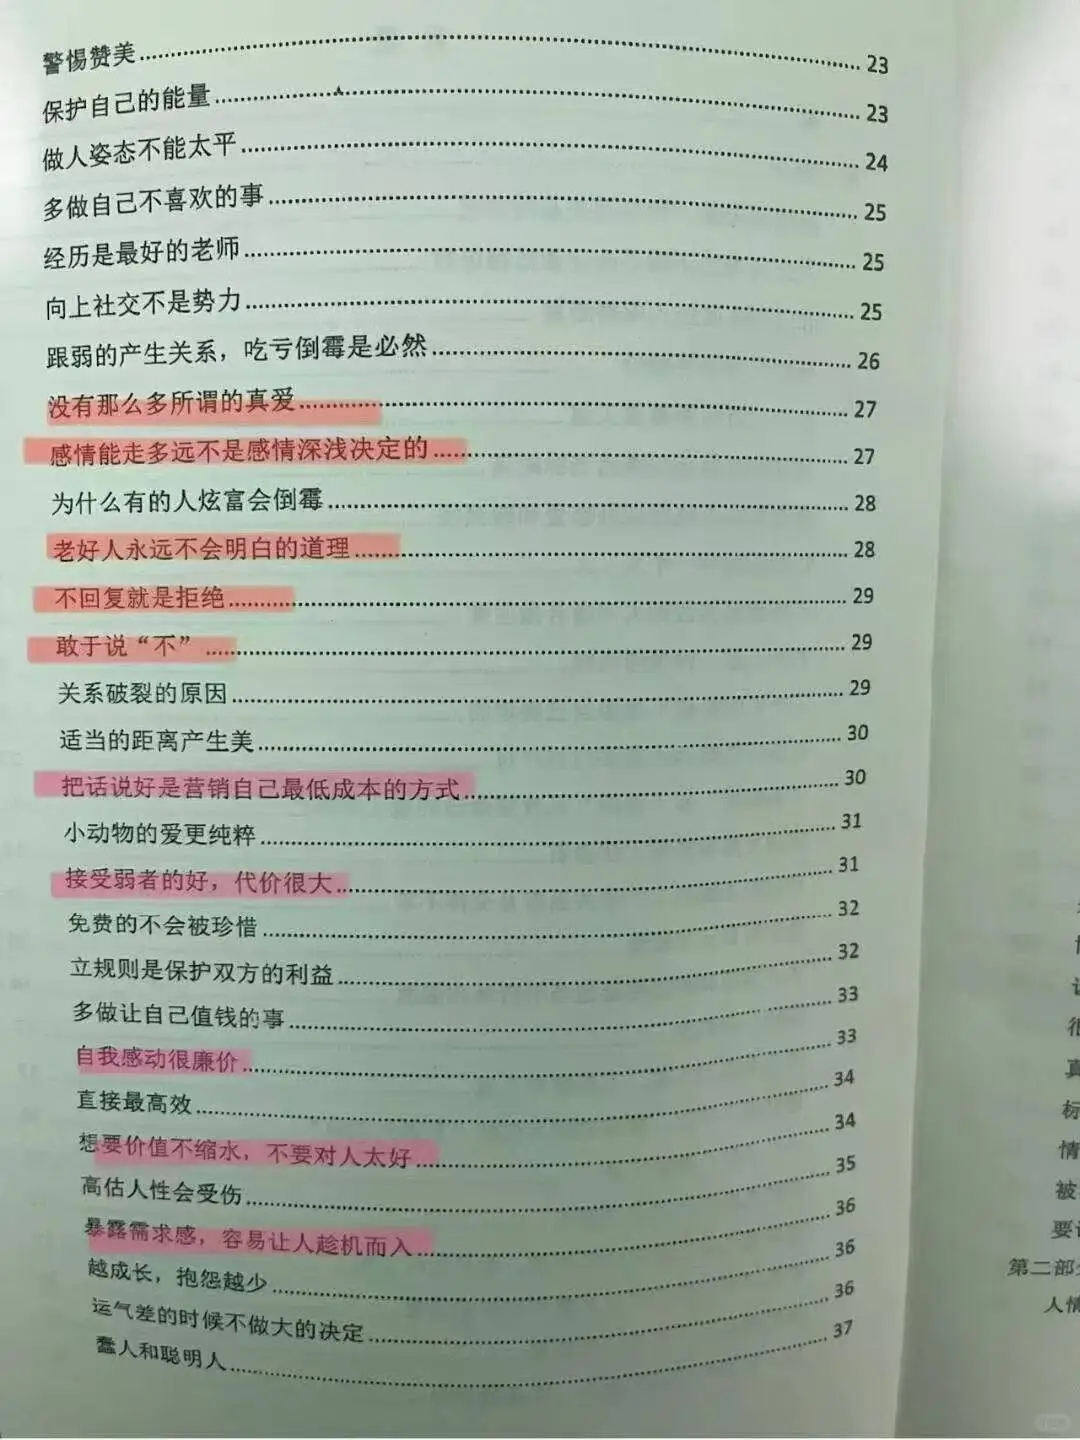 警惕赞美 23
保护自己的能量 23
做人姿态不能太平 24
多做自己不喜欢的事 25
经历是最好的老师 25
向上社交不是势力 25
跟弱的产生关系，吃亏倒霉是必然 26
没有那么多所谓的真爱 27
感情能走多远不是感情深浅决定的 27
为什么有的人炫富会倒霉 28
老好人永远不会明白的道理 28
不回复就是拒绝 29
敢于说“不” 29
关系破裂的原因 29
适当的距离产生美 30
把话说好是营销自己最低成本的方式 30
小动物的爱更纯粹 31
接受弱者的好，代价很大 31
免费的不会被珍惜 32
立规则是保护双方的利益 32
多做让自己值钱的事 33
自我感动很廉价 33
直接最高效 34
想要价值不缩水，不要对人太好 34
高估人性会受伤 35
暴露需求感，容易让人趁机而入 36
越成长，抱怨越少 36
运气差的时候不做大的决定 36
蠢人和聪明人 37
真
标
情
被
要
第二部
人情